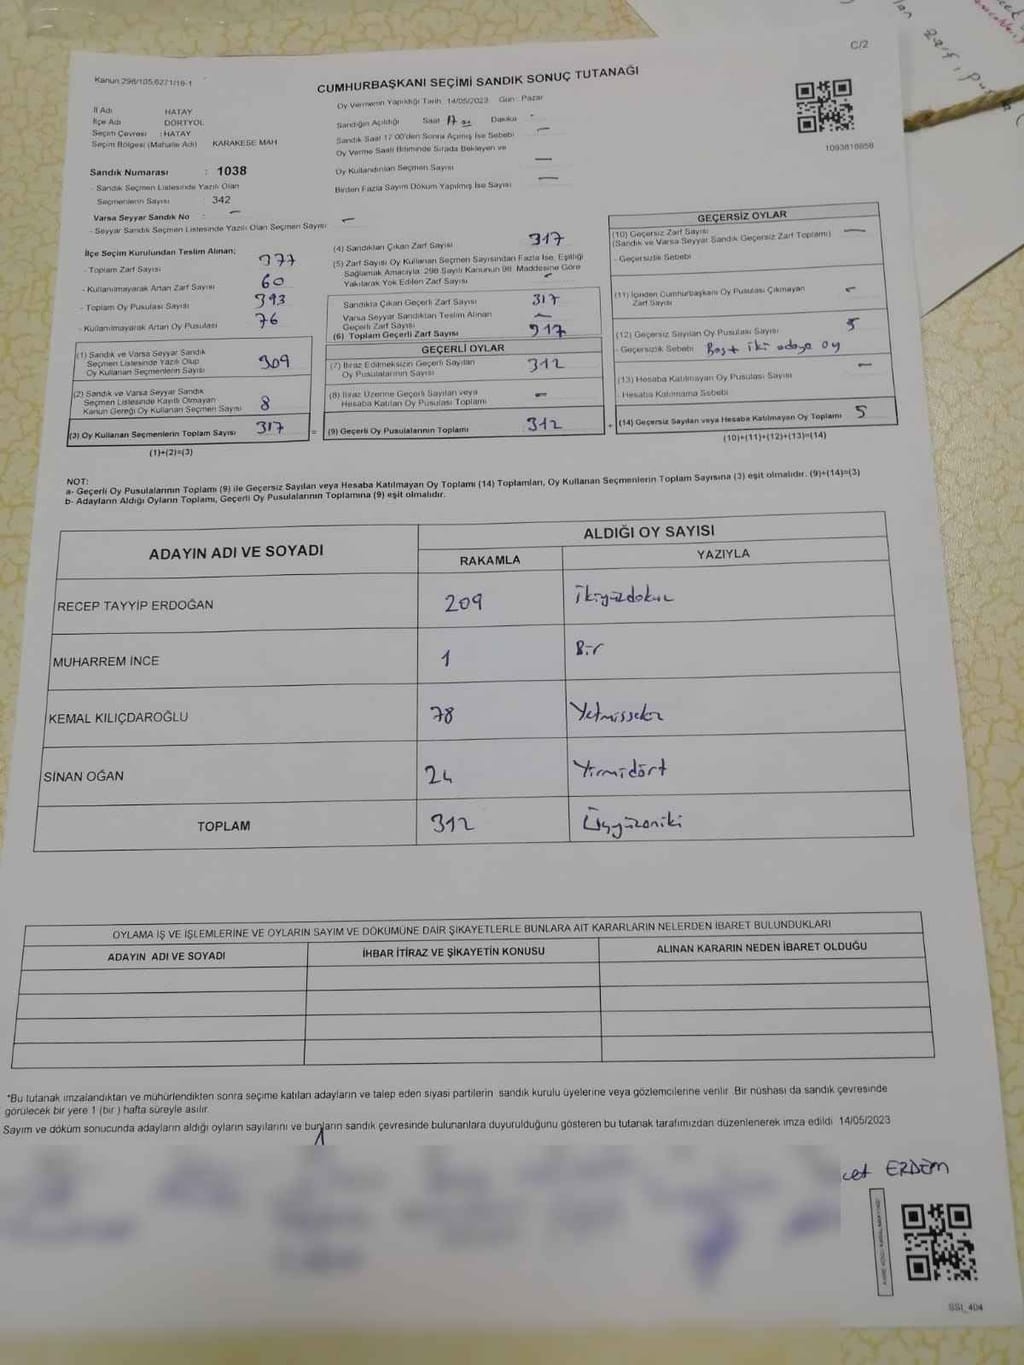 C/2
Kanun 298/105,6271/16-1
CUMHURBAŞKANI SEÇİMİ SANDIK SONUÇ TUTANAĞI
Oy Vermenin Yapıldığı Tarih: 14/05/2023 Gün: Pazar
İl Adı HATAY
İlçe Adı DÖRTYOL
Seçim Çevresi : HATAY
Seçim Bölgesi (Mahalle Adı) KARAKESE MAH
Sandığın Açıldığı Saat 17 Dakika
Sandık Saat 17:00'den Sonra Açılmış İse Sebebi
Oy Verme Saati Bitiminde Sırada Bekleyen ve
Oy Kullandırılan Seçmen Sayısı —
Birden Fazla Sayım Döküm Yapılmış İse Sayısı —
1093818858
Sandık Numarası : 1038
- Sandık Seçmen Listesinde Yazılı Olan
Seçmenlerin Sayısı 342
Varsa Seyyar Sandık No : —
- Seyyar Sandık Seçmen Listesinde Yazılı Olan Seçmen Sayısı —
İlçe Seçim Kurulundan Teslim Alınan;
- Toplam Zarf Sayısı 377
- Kullanılmayarak Artan Zarf Sayısı 60
- Toplam Oy Pusulası Sayısı 393
- Kullanılmayarak Artan Oy Pusulası 76
(1) Sandık ve Varsa Seyyar Sandık
Seçmen Listesinde Yazılı Olup
Oy Kullanan Seçmenlerin Sayısı 309
(2) Sandık ve Varsa Seyyar Sandık
Seçmen Listesinde Kayıtlı Olmayan
Kanun Gereği Oy Kullanan Seçmen Sayısı 8
(3) Oy Kullanan Seçmenlerin Toplam Sayısı 317
(1)+(2)=(3)
(4) Sandıktan Çıkan Zarf Sayısı 317
(5) Zarf Sayısı Oy Kullanan Seçmen Sayısından Fazla İse, Eşitliği
Sağlamak Amacıyla 298 Sayılı Kanunun 98. Maddesine Göre
Yakılarak Yok Edilen Zarf Sayısı —
Sandıkta Çıkan Geçerli Zarf Sayısı 317
Varsa Seyyar Sandıktan Teslim Alınan
Geçerli Zarf Sayısı —
(6) Toplam Geçerli Zarf Sayısı 317
GEÇERLİ OYLAR
(7) İtiraz Edilmeksizin Geçerli Sayılan
Oy Pusulalarının Sayısı 312
(8) İtiraz Üzerine Geçerli Sayılan veya
Hesaba Katılan Oy Pusulası Toplamı —
= (9) Geçerli Oy Pusulalarının Toplamı 312
GEÇERSİZ OYLAR
(10) Geçersiz Zarf Sayısı —
(Sandık ve Varsa Seyyar Sandık Geçersiz Zarf Toplamı)
- Geçersizlik Sebebi
(11) İçinden Cumhurbaşkanı Oy Pusulası Çıkmayan
Zarf Sayısı —
(12) Geçersiz Sayılan Oy Pusulası Sayısı 5
- Geçersizlik Sebebi iki adaya oy
(13) Hesaba Katılmayan Oy Pusulası Sayısı —
- Hesaba Katılmama Sebebi
+ (14) Geçersiz Sayılan veya Hesaba Katılmayan Oy Toplamı 5
(10)+(11)+(12)+(13)=(14)
NOT:
a- Geçerli Oy Pusulalarının Toplamı (9) ile Geçersiz Sayılan veya Hesaba Katılmayan Oy Toplamı (14) Toplamları, Oy Kullanan Seçmenlerin Toplam Sayısına (3) eşit olmalıdır. (9)+(14)=(3)
b- Adayların Aldığı Oyların Toplamı, Geçerli Oy Pusulalarının Toplamına (9) eşit olmalıdır.
ADAYIN ADI VE SOYADI ALDIĞI OY SAYISI
RAKAMLA YAZIYLA
RECEP TAYYİP ERDOĞAN 209 ikiyüzdokuz
MUHARREM İNCE 1 Bir
KEMAL KILIÇDAROĞLU 78 Yetmişsekiz
SİNAN OĞAN 24 Yirmidört
TOPLAM 312 Üçyüzoniki
OYLAMA İŞ VE İŞLEMLERİNE VE OYLARIN SAYIM VE DÖKÜMÜNE DAİR ŞİKAYETLERLE BUNLARA AİT KARARLARIN NELERDEN İBARET BULUNDUKLARI
ADAYIN ADI VE SOYADI İHBAR İTİRAZ VE ŞİKAYETİN KONUSU ALINAN KARARIN NEDEN İBARET OLDUĞU
*Bu tutanak imzalandıktan ve mühürlendikten sonra seçime katılan adayların ve talep eden siyasi partilerin sandık kurulu üyelerine veya gözlemcilerine verilir. Bir nüshası da sandık çevresinde
görülecek bir yere 1 (bir) hafta süreyle asılır.
Sayım ve döküm sonucunda adayların aldığı oyların sayılarını ve bunların sandık çevresinde bulunanlara duyurulduğunu gösteren bu tutanak tarafımızdan düzenlenerek imza edildi 14/05/2023
cet ERDEM
SSI_404